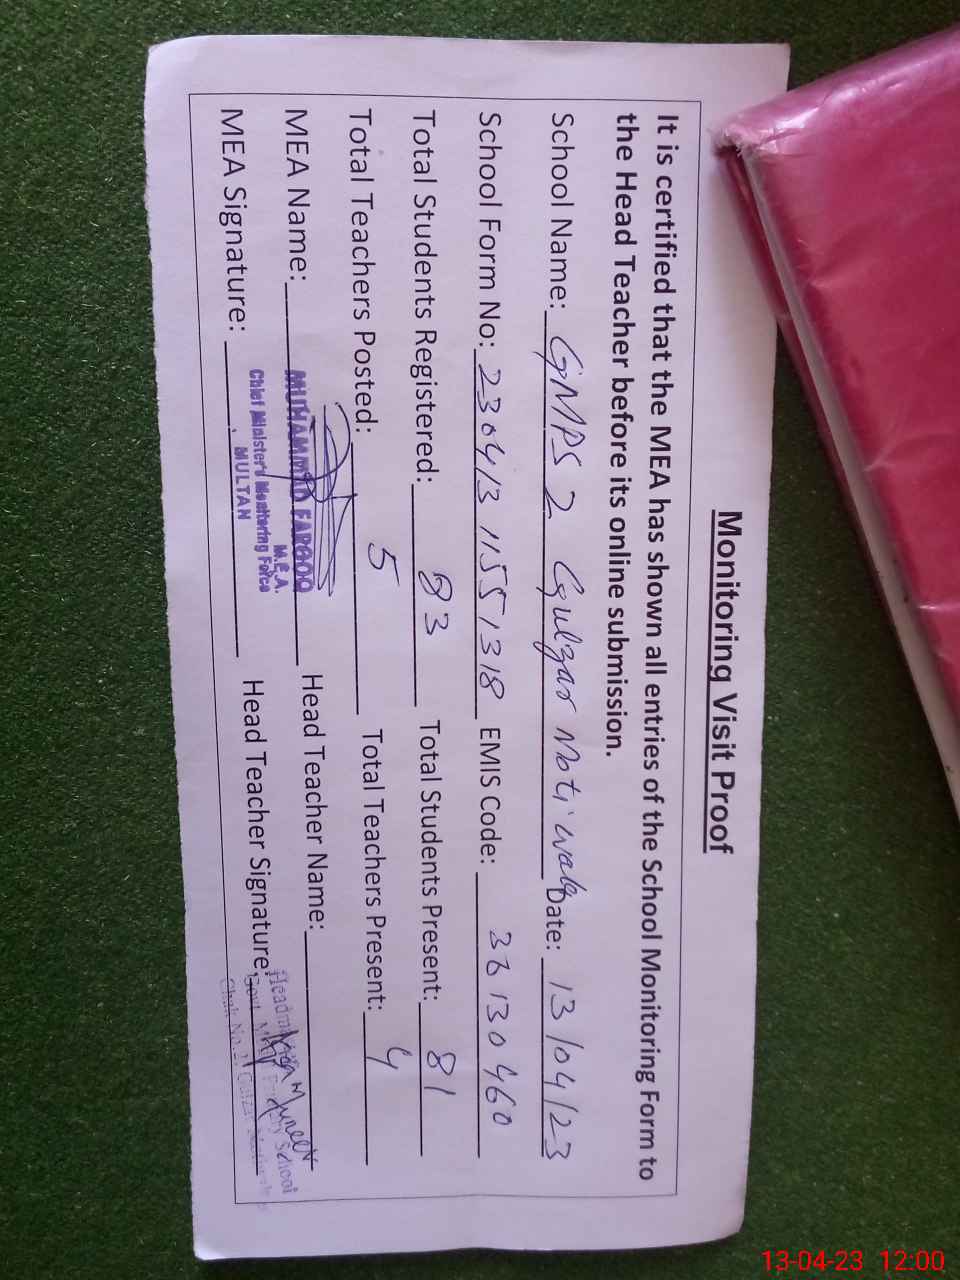 Monitoring Visit Proof
It is certified that the MEA has shown all entries of the School Monitoring Form to
the Head Teacher before its online submission.
School Name: GMPS 2 Gulzar Moti wala Date: 13/04/23
School Form No: 230413 11551318 EMIS Code: 36130460
Total Students Registered: 83 Total Students Present: 81
Total Teachers Posted: 5 Total Teachers Present: 4
MEA Name: MUHAMMAD FAROOQ Head Teacher Name:
M.E.A.
Chief Minister's Monitoring Force
MULTAN
MEA Signature: Head Teacher Signature:
Govt. School
Chak No. 2
13-04-23 12:00